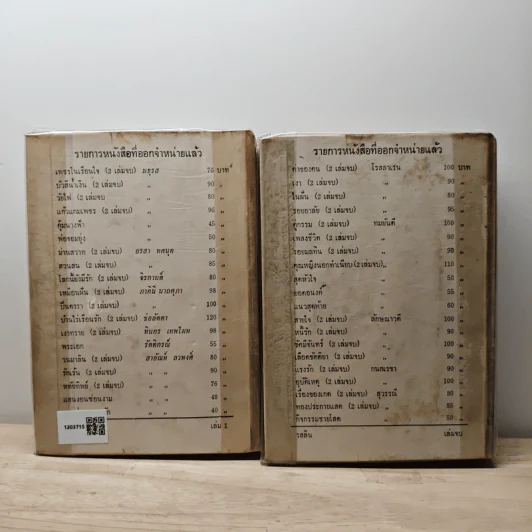 รายการหนังสือที่ออกจำหน่ายแล้ว
เพชรในเรือนใจ (2 เล่มจบ) มธุรส 70 บาท
บัวสีน้ำเงิน (2 เล่มจบ) „ 90 „
วังไฟ (2 เล่มจบ) „ 80 „
แก้วแกมเพชร (2 เล่มจบ) „ 90 „
คุ้มนางฟ้า „ 45 „
พ่อจอมยุ่ง „ 50 „
ม่านสวาท (2 เล่มจบ) อรสา 80 „
สวนสน (2 เล่มจบ) „ 85 „
โลกนี้ยังมีรัก (2 เล่มจบ) จิรกานต์ 80 „
เหมือนฝัน (2 เล่มจบ) ภาคินี นายคุภา 98 „
ปิ่นดารา (2 เล่มจบ) „ 100 „
บ้านไร่เรือนรัก (2 เล่มจบ) ช่อลัดดา 120 „
เงาทราย (2 เล่มจบ) ทินกร เทพไมท 98 „
พระเอก รัตติกรณ์ 55 „
วนมาลิน (2 เล่มจบ) สายัณห์ 80 „
รัดเร้น (2 เล่มจบ) „ „ 90 „
(2 เล่มจบ) „ „ 70 „
แสนงอนซ่อนงาม „ „ 40 „
„ „ 40 „
เล่ม 1
1203715
รายการหนังสือที่ออกจำหน่ายแล้ว
ค่าของคน (2 เล่มจบ) โรสลาเรน 100 บาท
เงา (2 เล่มจบ) „ 90 „
ในฝัน (2 เล่มจบ) „ 80 „
รอยอาลัย (2 เล่มจบ) „ 95 „
คู่กรรม (2 เล่มจบ) ทมยันตี 100 „
เพลงชีวิต (2 เล่มจบ) „ 90 „
รอยมลทิน (2 เล่มจบ) „ 90 „
คุณหญิงนอกทำเนียบ (2 เล่มจบ) „ 110 „
สุดหัวใจ „ 50 „
ยอดอนงค์ „ 55 „
แนวสุดท้าย „ 60 „
สายใจ (2 เล่มจบ) ลักษณวดี 100 „
หนี้รัก (2 เล่มจบ) „ 100 „
รัศมีจันทร์ (2 เล่มจบ) „ 100 „
เลือดขัตติยา (2 เล่มจบ) „ 90 „
แรงรัก (2 เล่มจบ) กนกเรขา 90 „
อุบัติเหตุ (2 เล่มจบ) „ 100 „
เรื่องของเกด (2 เล่มจบ) สุวรรณี 80 „
ทองประกายแสด (2 เล่มจบ) „ 85 „
กิจกรรมชายโสด „ 50 „
รสลิน เล่มจบ